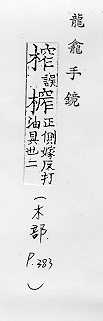 龍龕手鏡
搾誤
榨正側嫁反打
油具也二
（木部.
P.383
）